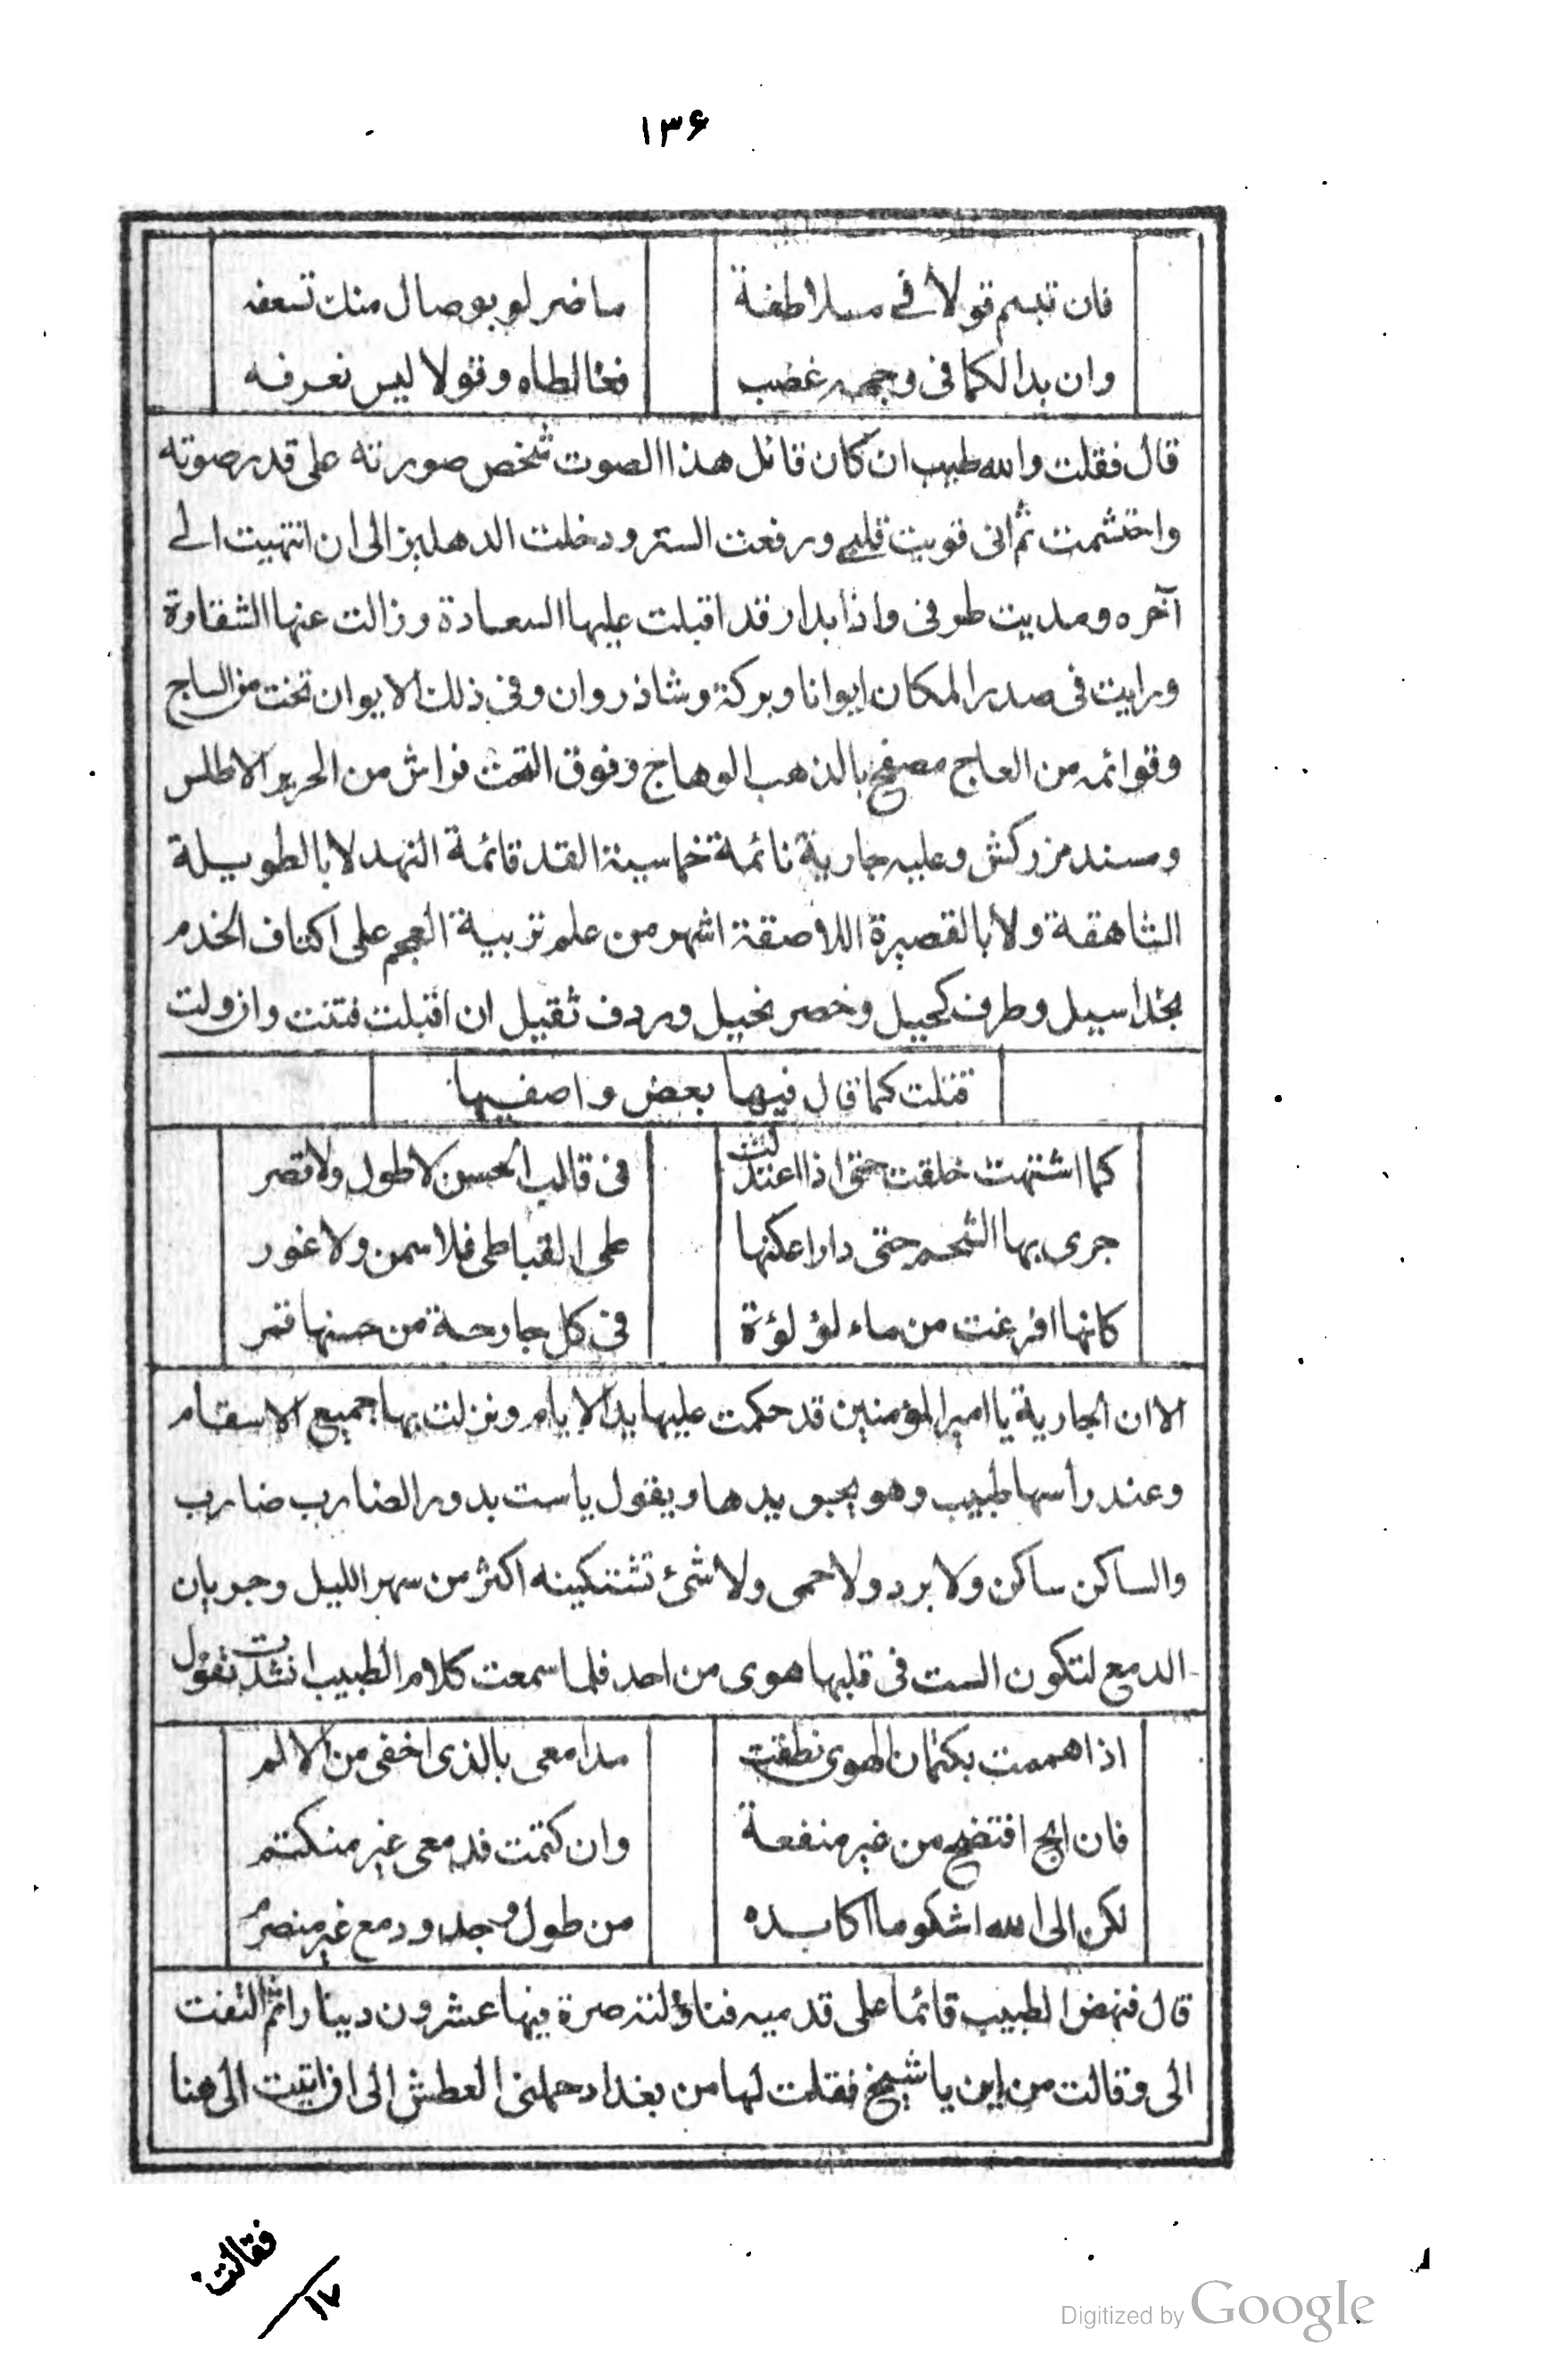 ١٣۶
فان تبسم قولا في ملاطفة ما ضر لو بوصال منك تسعفه
وان بدا لكما فى وجهه غضب فغالطاه وقولا ليس نعرفه
قال فقلت والله طيب ان كان قائل هذا الصوت شخص صورته على قدر صوته
واحتشمت ثم انى قويت قلبي ورفعت الستر ودخلت الدهليز الى ان انتهيت الى
آخره ومديت طرفى واذا بدار قد اقبلت عليها السعادة وزالت عنها الشقاوة
ورايت فى صدر المكان ايوانا وبركة وشاذروان وفى ذلك الايوان تخت من الساج
وقوائمه من العاج مصفح بالذهب الوهاج وفوق التخت فراش من الحرير الاطلس
ومسند مزركش وعليه جارية نائمة خماسية القد قائمة النهد لا بالطويلة
الشاهقة ولا بالقصيرة اللاصقة اشهر من علم تربية العجم على اكتاف الخدم
بخد اسيل وطرف كحيل وخصر نحيل وردف ثقيل ان اقبلت فتنت وان ولت
قتلت كما قال فيها بعض واصفيها
كما اشتهت خلقت حتى اذا اعتدلت فى قالب الحسن لا طول ولا قصر
جرى بها الشحم حتى دار اعكنها طى القباطى فلا سمن ولا غور
كانها افرغت من ماء لؤلؤة فى كل جارحة من حسنها قمر
الا ان الجارية يا امير المؤمنين قد حكمت عليها يد الايام ونزلت بها جميع الاسقام
وعند رأسها طبيب وهو يجبو يدها ويقول ياست بدور الضارب ضارب
والساكن ساكن ولا برد ولا حمى ولا شئ تشتكينه اكثر من سهر الليل وجريان
الدمع لتكون الست فى قلبها هوى من احد فلما سمعت كلام الطبيب انشدت تقول
اذا هممت بكتمان الهوى نطقت مدامعى بالذى اخفى من الالم
فان ابح افتضح من غير منفعة وان كتمت فدمعى غير منكتم
لكن الى الله اشكو ما اكابده من طول وجد ودمع غير منصرم
قال فنهض الطبيب قائما على قدميه فناولته صرة فيها عشرون دينارا ثم التفتت
الى وقالت من اين يا شيخ فقلت لها من بغداد حملنى العطش الى ان اتيت الى هنا
فقالت
١٧
Digitized by Google